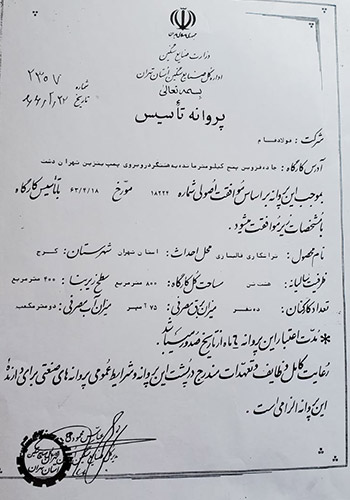 جمهوری اسلامی ایران
وزارت صنایع سنگین
اداره کل صنایع سنگین استان تهران
بسمه تعالی
شماره ۲۳۵۷
تاریخ
پروانه تأسیس
شرکت : فولاد فام
آدرس کارگاه : جاده قزوین پنج کیلومتر مانده به هشتگرد روبروی پمپ بنزین تهران دشت
بموجب این پروانه بر اساس موافقت اصولی شماره ۱۸۲۲۲ مورخ ۶۳/۲/۱۸ با تأسیس کارگاه
با مشخصات زیر موافقت میشود .
نام محصول : تراشکاری قالبسازی محل احداث : استان تهران شهرستان : کرج
ظرفیت سالیانه : هفت تن مساحت کل کارگاه : ۸۰۰ مترمربع سطح زیربنا : ۴۰۰ مترمربع
تعداد کارکنان : ده نفر میزان برق مصرفی : ۷۵ آمپر میزان آب مصرفی : دو مترمکعب
* مدت اعتبار این پروانه ۶ ماه از تاریخ صدور میباشد
رعایت کامل وظایف و تعهدات مندرج در پشت این پروانه و شرایط عمومی پروانه های صنعتی برای دارنده
این پروانه الزامی است .